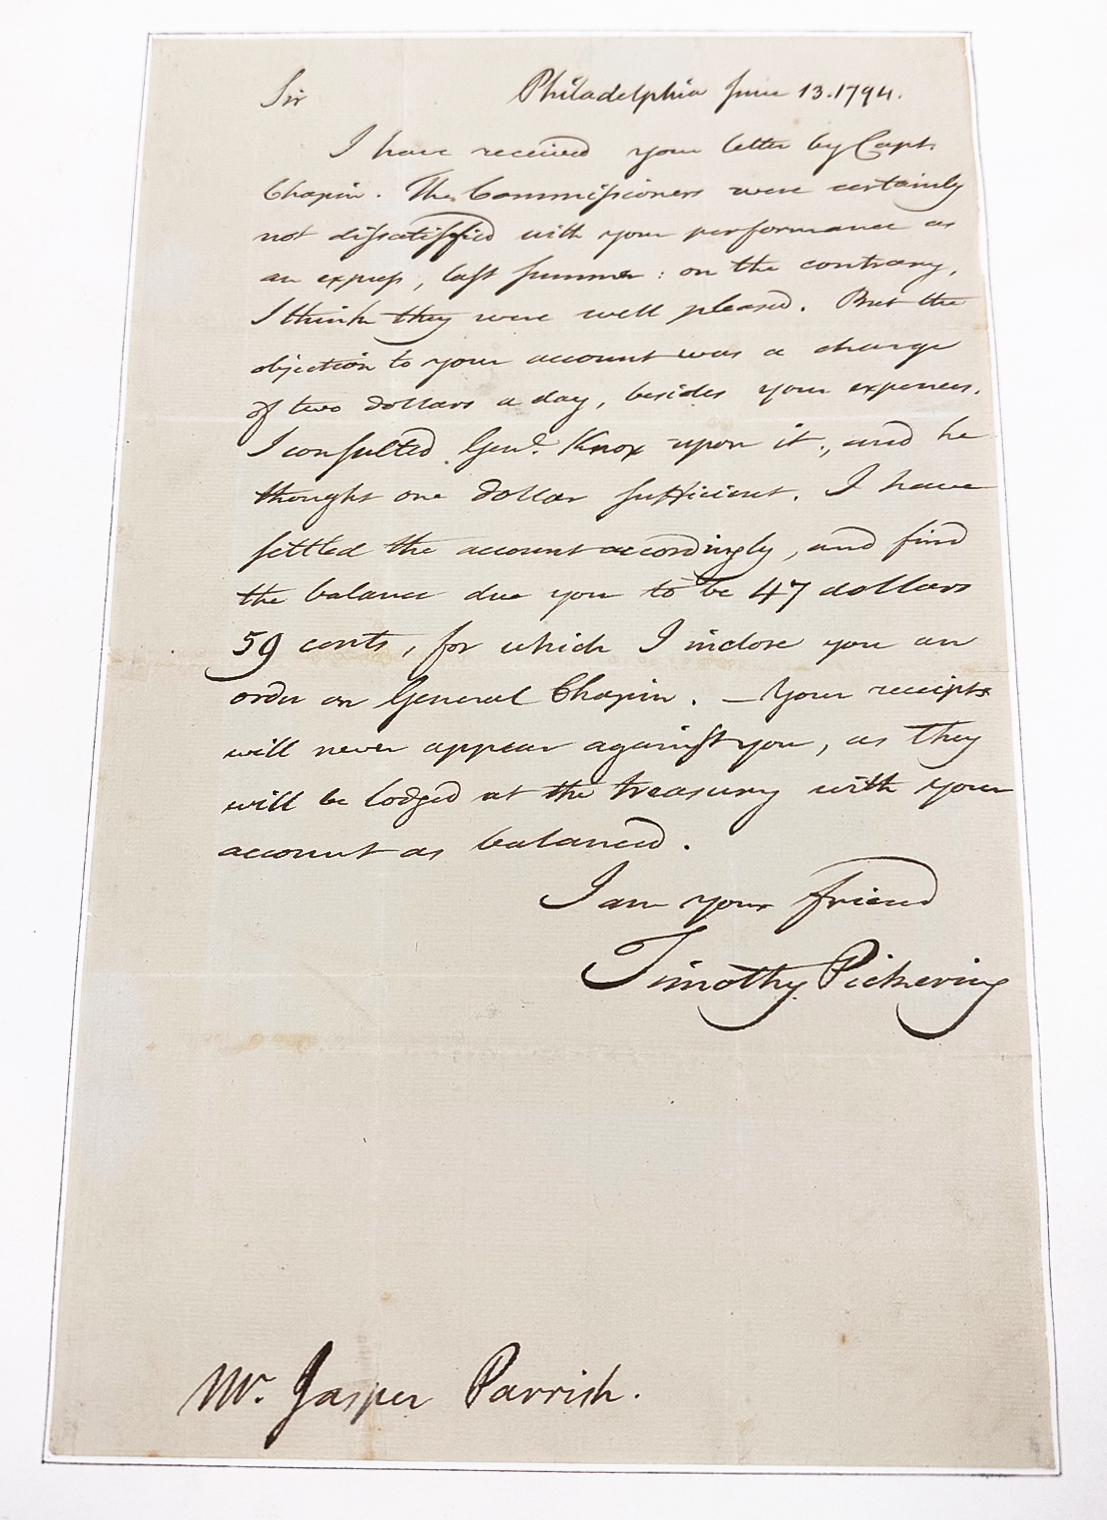 Sir Philadelphia June 13. 1794.
I have received your letter by Capt.
Chapin. The Commissioners were certainly
not dissatisfied with your performance as
an express, last summer: on the contrary,
I think they were well pleased. But the
objection to your account was a charge
of two dollars a day, besides your expences.
I consulted Genl. Knox upon it, and he
thought one dollar sufficient. I have
settled the account accordingly, and find
the balance due you to be 47 dollars
59 cents, for which I inclose you an
order on General Chapin. — Your receipts
will never appear against you, as they
will be lodged at the treasury with your
account as balanced.
I am your friend
Timothy Pickering
Mr. Jasper Parrish.